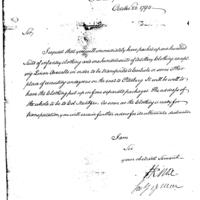 October 22 1790
Sir,
I request that you will immediately have packed up one hundred
suits of infantry clothing and one hundred suits of Artillery Clothing except
Linen Overalls in order to be transported to Carlisle or some other
place of convenient carriage on the route to Pittsburg. It will be well to
have the Clothing put up on four separable packages. The address of
the whole to be to Col
As soon as the Clothing is ready for
transportation you will receive further orders for its ultimate destination
I am
Sir
your obedient Servant
HKnox